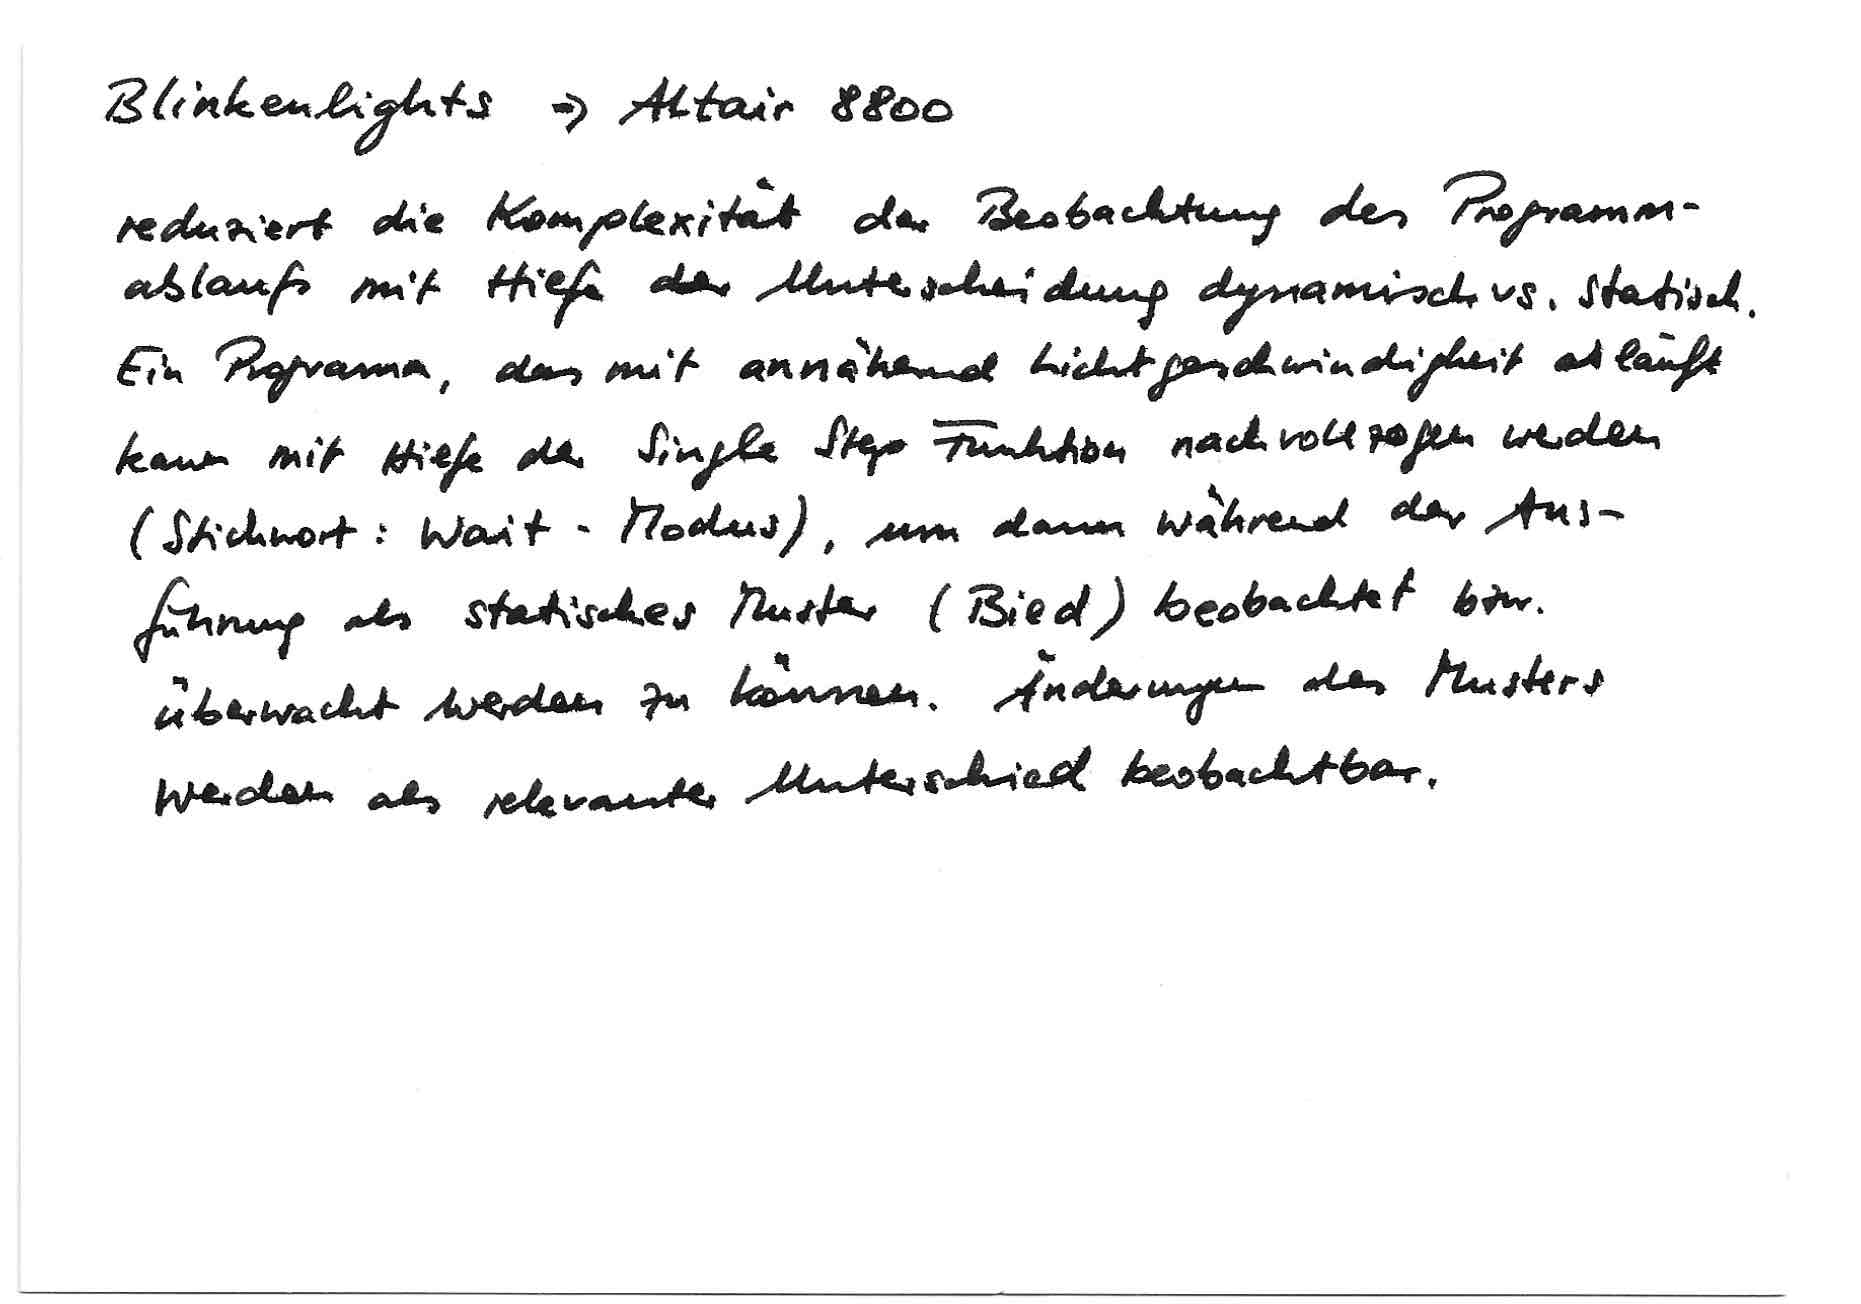 Blinkenlights → Altair 8800
reduziert die Komplexität der Beobachtung des Programm-
ablaufs mit Hilfe der Unterscheidung dynamisch vs. statisch.
Ein Programm, das mit annähernd Lichtgeschwindigkeit abläuft
kann mit Hilfe der Single Step Funktion nachvollzogen werden
(Stichwort: Wait - Modus), um dann während der Aus-
führung als statisches Muster (Bild) beobachtet bzw.
überwacht werden zu können. Änderungen des Musters
werden als relevanter Unterschied beobachtbar.